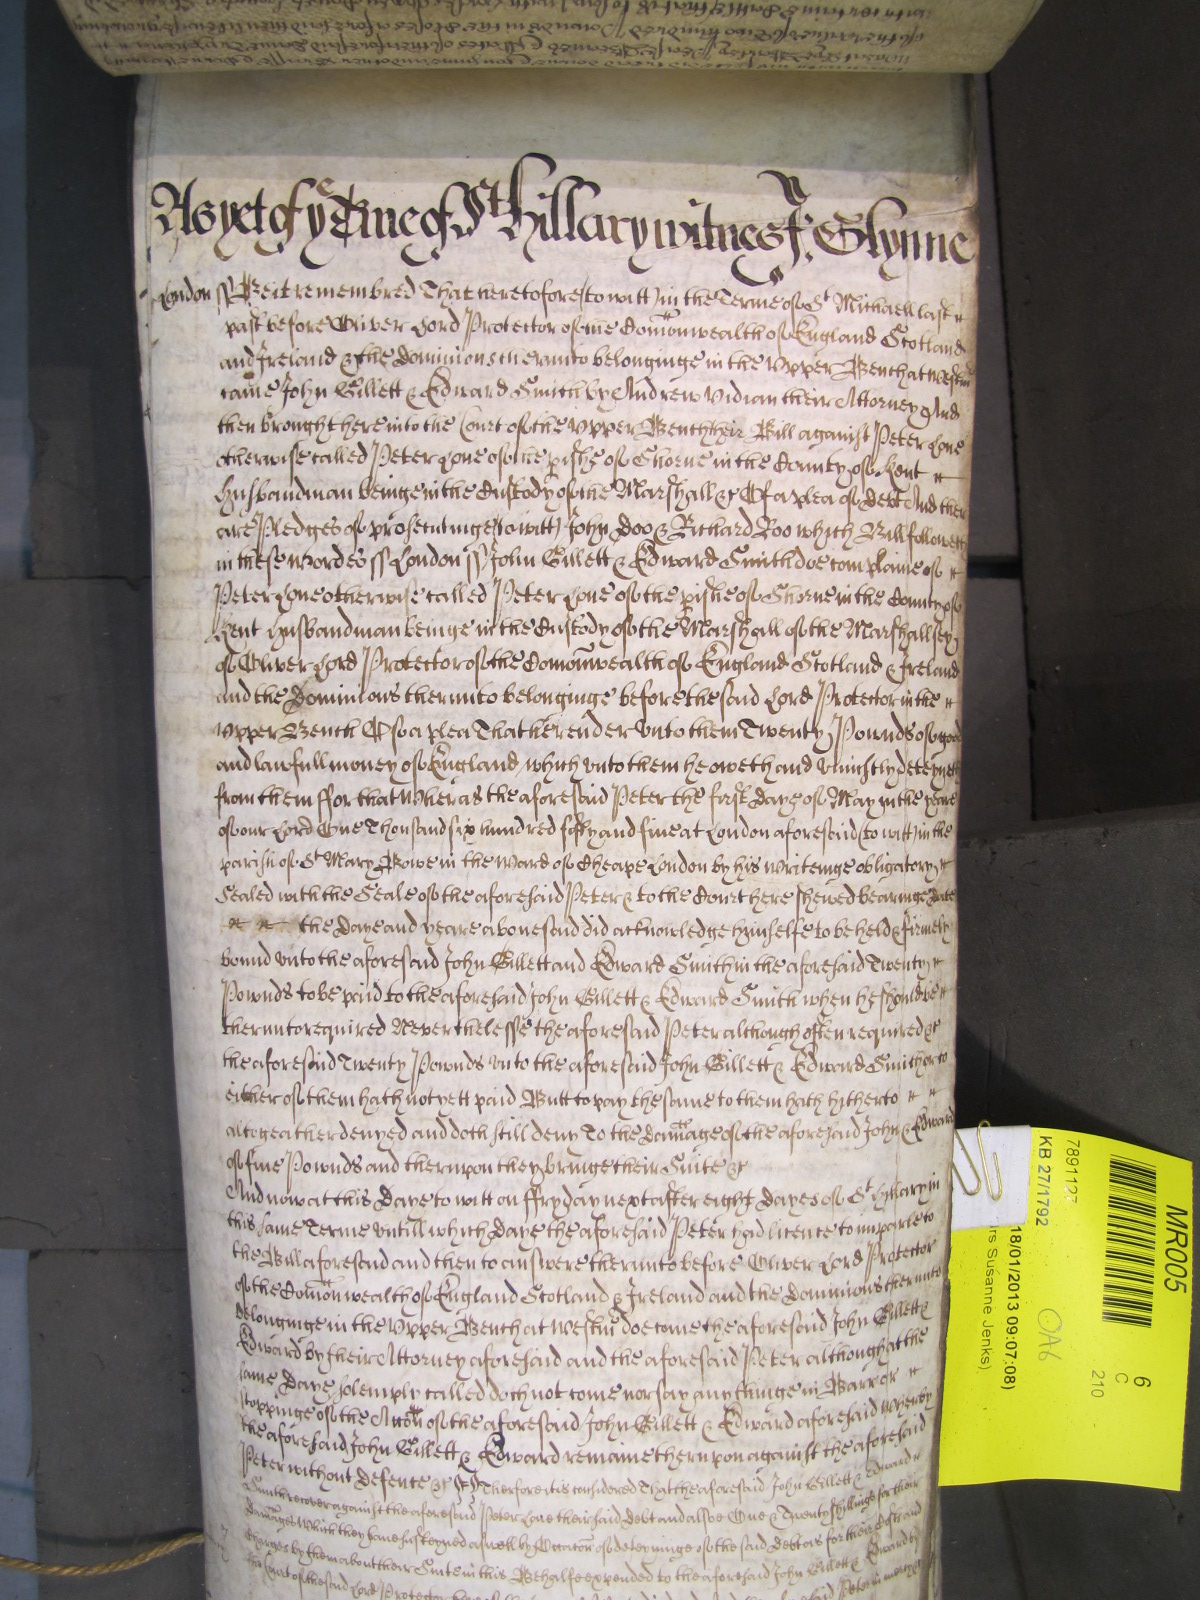 As yet of ye Tme of St Hillary witnes Jn: Glynne
London ss Be it remembred That heretofore (to witt) in the Terme of St Michaell last
past before Oliver Lord Protector of the Comonwealth of England Scotland
and Ireland & the Dominions therunto belonginge in the Upper Bench at Westmr
came John Gillett & Edward Smith by Andrew Vidian their Attorney And
then brought here into the Court of the Upper Bench their Bill against Peter Lone
otherwise called Peter Lone of the pishe of Shorne in the County of Kent
Husbandman beinge in the Custody of the Marshall &c Of a plea of Debt And ther
are Pledges of prosecutinge (to witt) John Doo & Richard Roo which Bill followeth
in these wordes ss London ss John Gillett & Edward Smith doe complaine of
Peter Lone otherwise called Peter Lone of the pishe of Shorne in the County of
Kent Husbandman beinge in the Custody of the Marshall of the Marshallsey
of Oliver Lord Protector of the Comonwealth of England Scotland & Ireland
and the Dominions therunto belonginge before the said Lord Protector in the
Upper Bench Of a plea That he render unto them Twenty Pownds of good
and lawfull money of England which unto them he oweth and uniustly deteyneth
from them ffor that Wheras the aforesaid Peter the first daye of May in the yeare
of our Lord One Thousand six hundred fifty and five at London aforesaid (to witt) in the
parish of St Mary Bowe in the Ward of Cheape London by his writeinge obligatory
Sealed with the Seale of the aforesaid Peter & to the Court here shewed bearinge date
the Daye and yeare abovesaid did acknowledge himselfe to be held & firmely
bound unto the aforesaid John Gillett and Edward Smith in the aforesaid Twenty
Pownds to be paid to the aforesaid John Gillett & Edward Smith when he should be
therunto required Neverthelesse the aforesaid Peter although often required &c
the aforesaid Twenty Pownds unto the aforesaid John Gillett & Edward Smith or to
either of them hath not yett paid Butt to pay the same to them hath hitherto
altogeather denyed and doth still deny To the damage of the aforesaid John & Edward
of five Pownds and therupon they bringe their Suite &c
And now at this Daye to witt on ffryday next after eight dayes of St Hillary in
this same Terme untill which daye the aforesaid Peter had licence to imparle to
the Bill aforesaid and then to answere therunto before Oliver Lord Protector
of the Comonwealth of England Scotland & Ireland and the Dominions therunto
belonginge in the Upper Bench at Westmr doe come the aforesaid John Gillett &
Edward by their Attorney aforesaid and the aforesaid Peter although at the
same Daye solemply called doth not come nor say any thinge in Barr or
stoppinge of the Accon of the aforesaid John Gillett & Edward aforesaid wherby
the aforesaid John Gillett & Edward remaine therupon against the aforesaid
Peter without defence &c Therfore it is considered That the aforesaid John Gillett & Edward
Smith recover against the aforesaid Peter Lone their said Debt and alsoe One & Twenty shillings for their
damages Which they have susteyned aswell by Occacon of deteyninge of the said Debt as for their Costs and
Charges by them about their Suite in this Behalfe expended to the aforesaid John Gillett & Edward by
the Court of the said Lord Protector
MR005
6
C
210
7891127
KB 27/1792
OA6
18/01/2013 09:07:08)
rs Susanne Jenks)